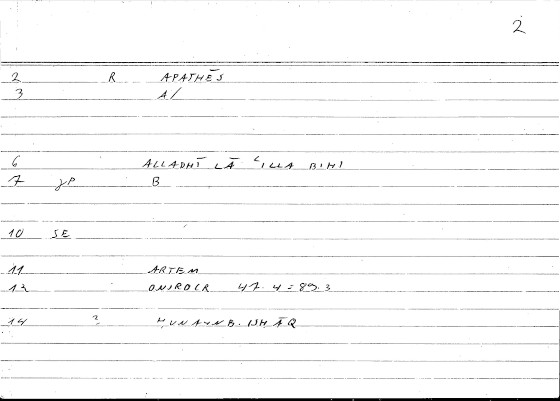 2
2 R APATHĒS
3 A/
6 ALLADHĪ LĀ ʿILLA BIHI
7 γP B
10 SE
11 ARTEM
12 ONIROCR 47.4 = 89.3
14 ? ḤUNAYN B. ISḤĀQ